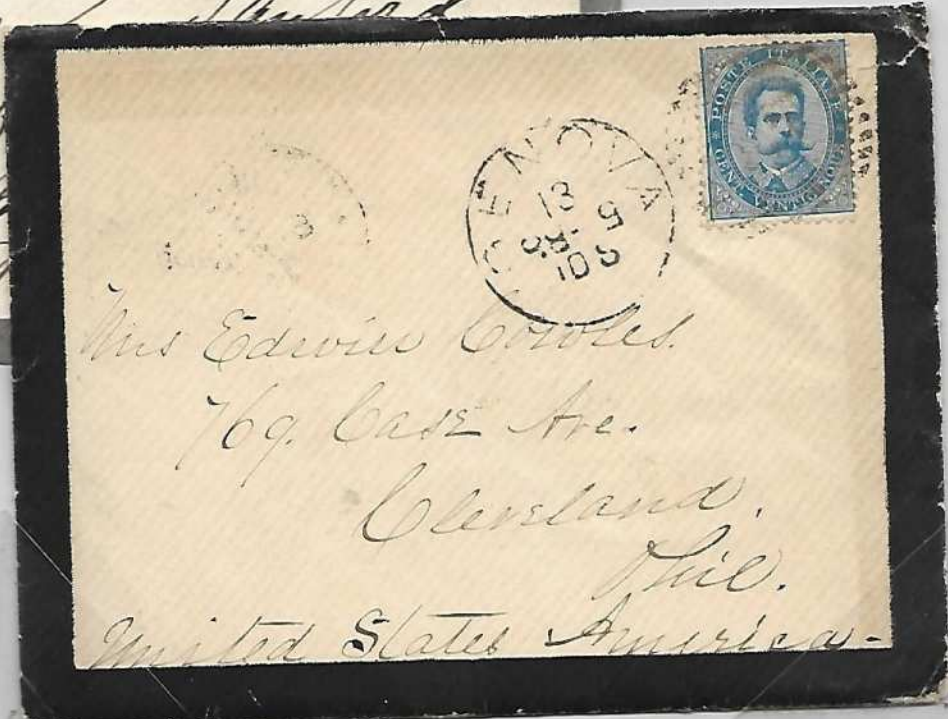 POSTE ITALIANE
CENT. VENTICINQUE
GENOVA
Mrs Edwin Cowles.
769. Case Ave.
Cleveland.
Ohio.
United States America-